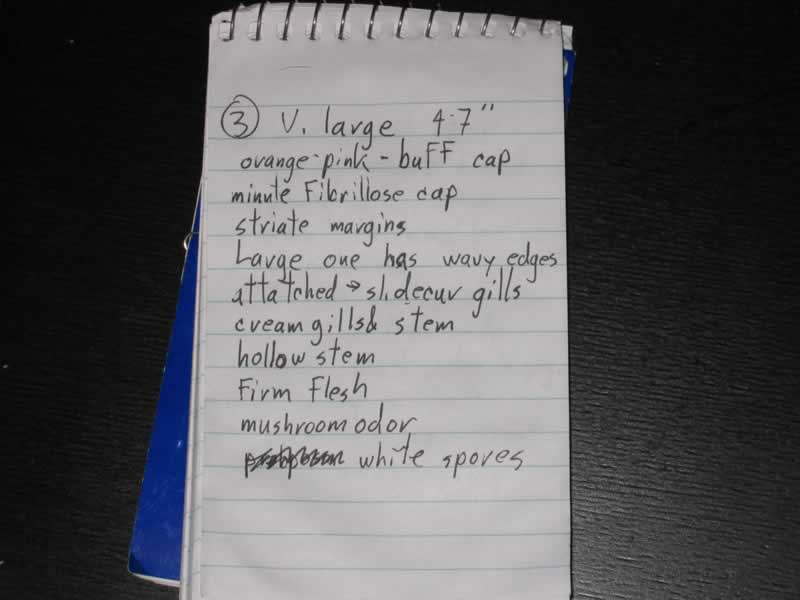 ③ V. large 4-7"
orange-pink-buff cap
minute Fibrillose cap
striate margins
Large one has wavy edges
attatched → sl. decur gills
cream gills & stem
hollow stem
Firm Flesh
mushroom odor
white spores